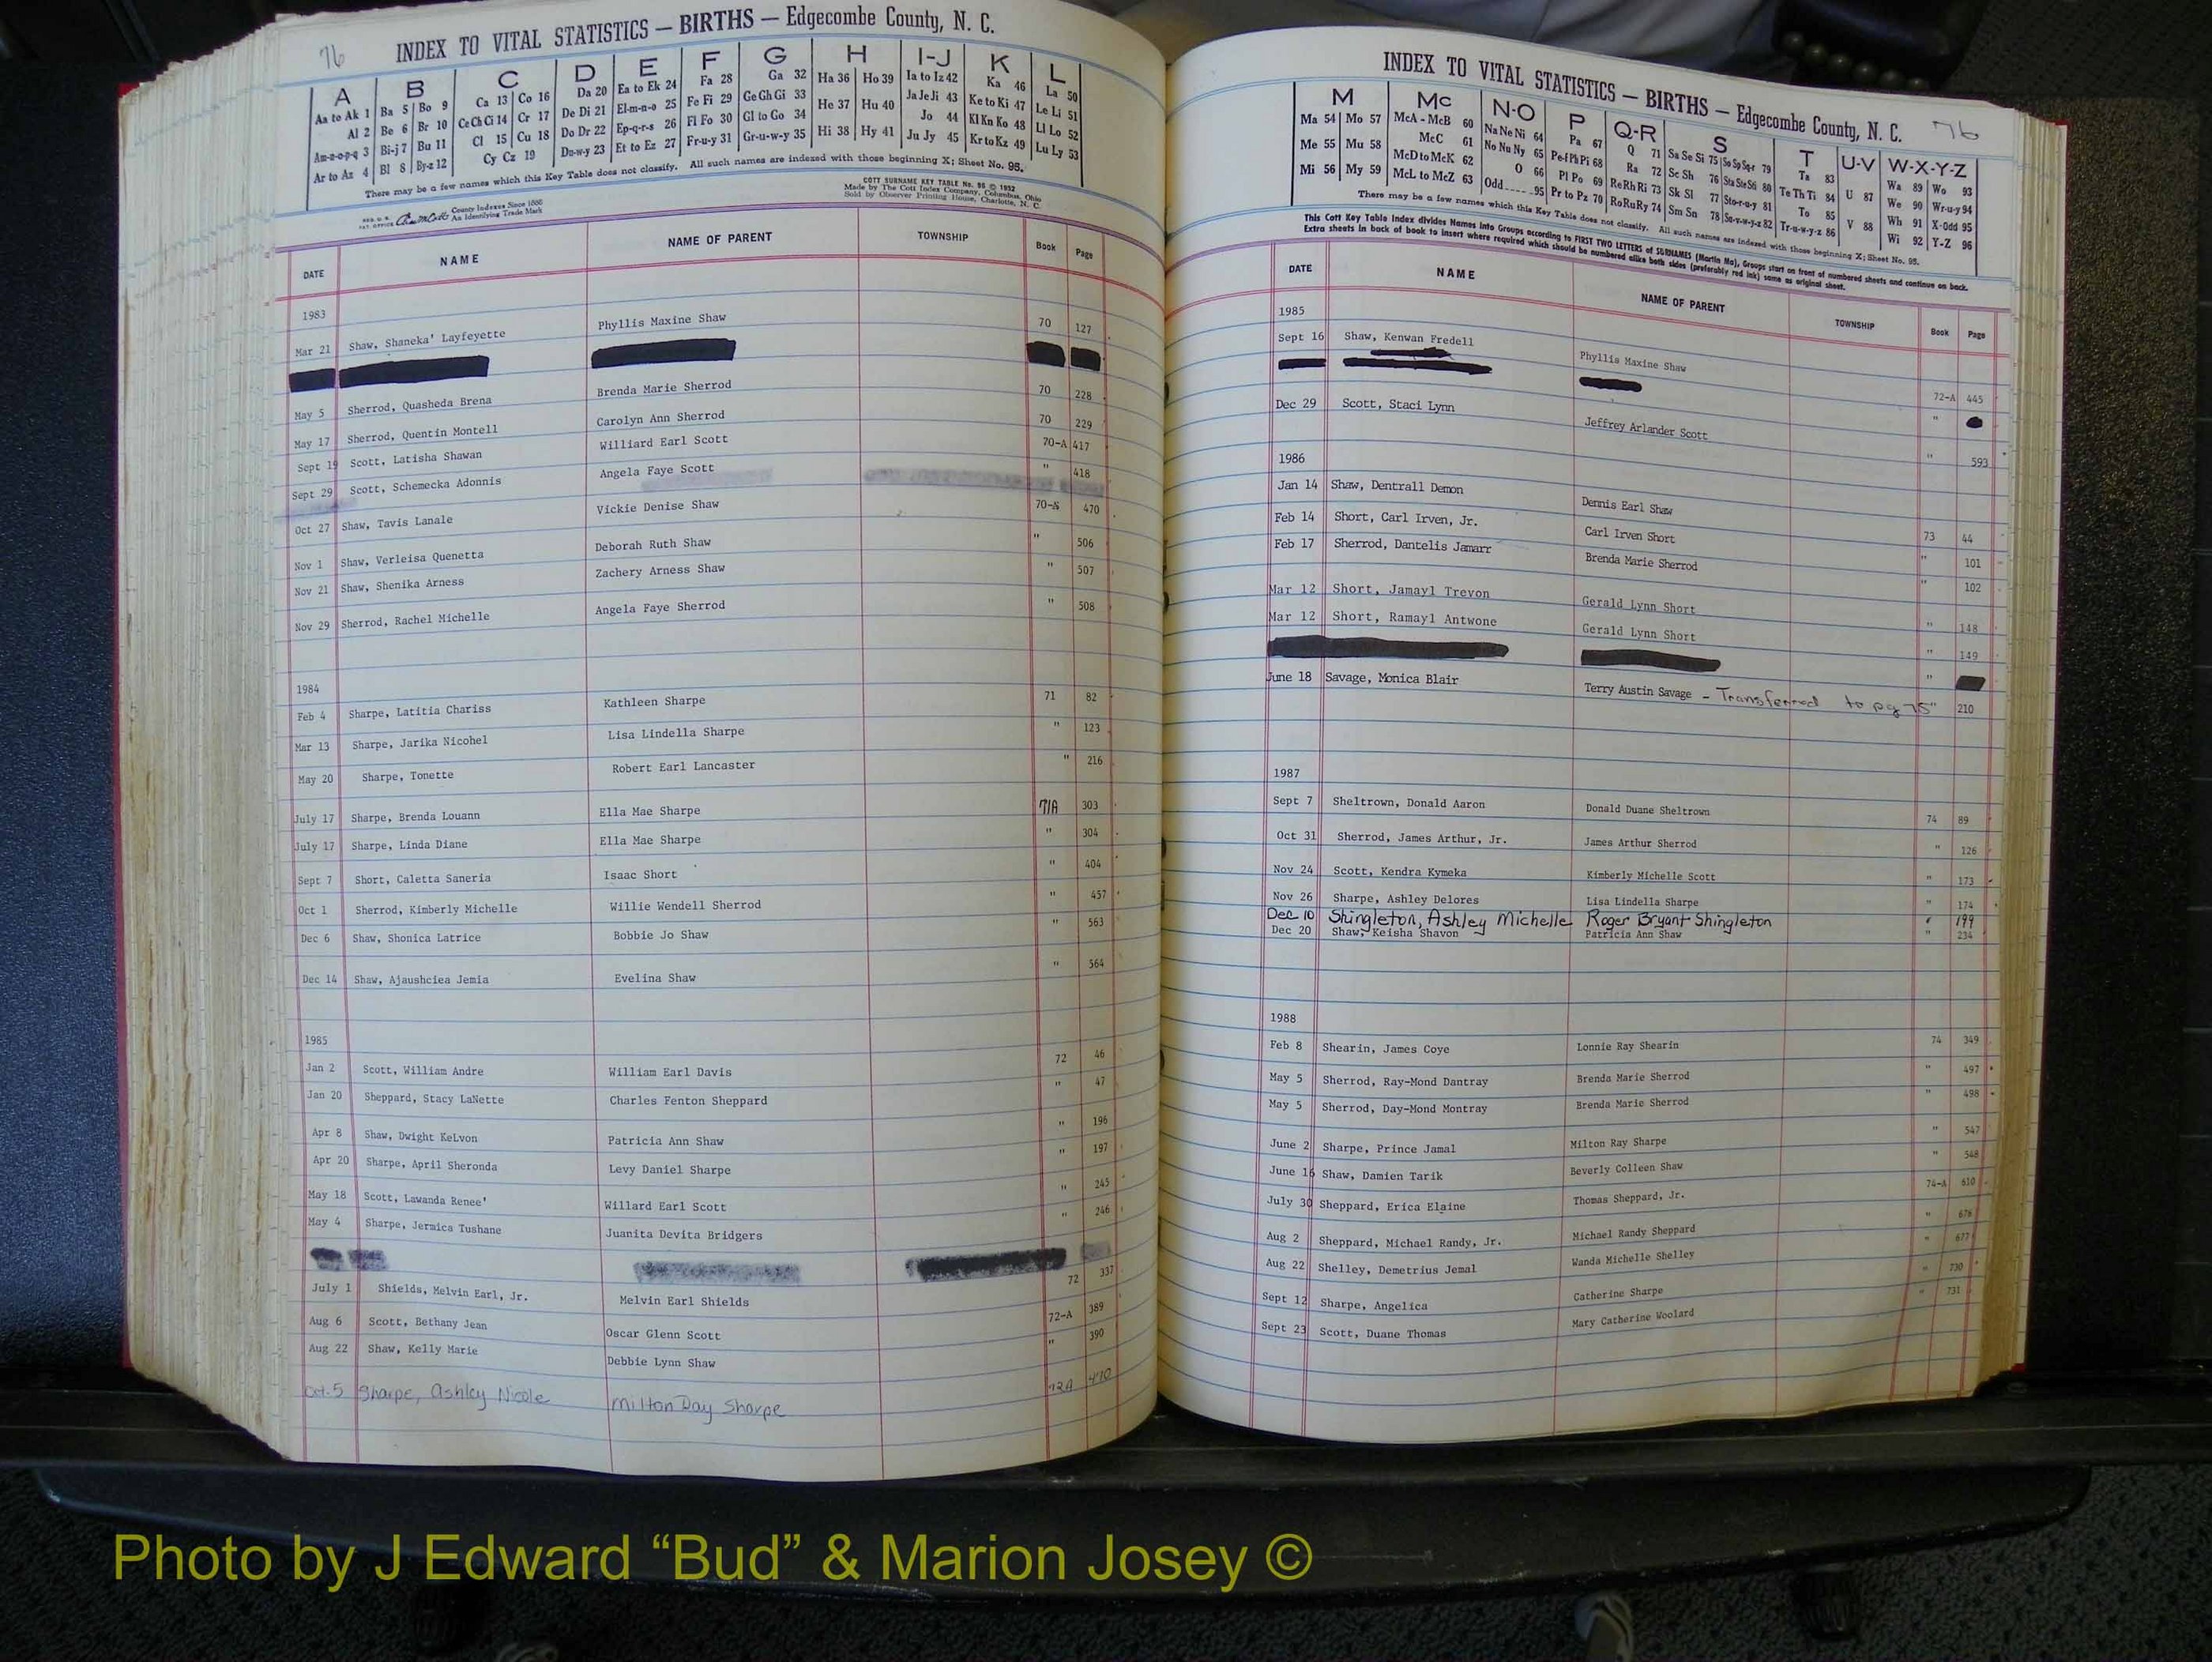 76 INDEX TO VITAL STATISTICS — BIRTHS — Edgecombe County, N. C.
A B C D E F G H I-J K L
Aa to Ak 1 Ba 5 Bo 9 Ca 13 Co 16 Da 20 Ea to Ek 24 Fa 28 Ga 32 Ha 36 Ho 39 Ia to Iz 42 Ka 46 La 50
Al 2 Be 6 Br 10 Ce Ch Ci 14 Cr 17 De Di 21 El-m-n-o 25 Fe Fi 29 Ge Gh Gi 33 He 37 Hu 40 Ja Je Ji 43 Ke to Ki 47 Le Li 51
Am-n-o-p-q 3 Bi-j 7 Bu 11 Cl 15 Cu 18 Do Dr 22 Ep-q-r-s 26 Fl Fo 30 Gl to Go 34 Hi 38 Hy 41 Jo 44 Kl Kn Ko 48 Ll Lo 52
Ar to Az 4 Bl 8 By-z 12 Cy Cz 19 Du-w-y 23 Et to Ez 27 Fr-u-y 31 Gr-u-w-y 35 Ju Jy 45 Kr to Kz 49 Lu Ly 53
There may be a few names which this Key Table does not classify. All such names are indexed with those beginning X; Sheet No. 95.
County Indexes Since 1888
An Identifying Trade Mark
COTT SURNAME KEY TABLE No. 95 © 1952
Made by The Cott Index Company, Columbus, Ohio
Sold by Observer Printing House, Charlotte, N. C.
DATE NAME NAME OF PARENT TOWNSHIP Book Page
1983
Mar 21 Shaw, Shaneka' Layfeyette Phyllis Maxine Shaw 70 127
May 5 Sherrod, Quasheda Brena Brenda Marie Sherrod 70 228
May 17 Sherrod, Quentin Montell Carolyn Ann Sherrod 70 229
Sept 19 Scott, Latisha Shawan Williard Earl Scott 70-A 417
Sept 29 Scott, Schemecka Adonnis Angela Faye Scott " 418
Oct 27 Shaw, Tavis Lanale Vickie Denise Shaw 470
Nov 1 Shaw, Verleisa Quenetta Deborah Ruth Shaw " 506
Nov 21 Shaw, Shenika Arness Zachery Arness Shaw " 507
Nov 29 Sherrod, Rachel Michelle Angela Faye Sherrod " 508
1984
Feb 4 Sharpe, Latitia Chariss Kathleen Sharpe 71 82
Mar 13 Sharpe, Jarika Nicohel Lisa Lindella Sharpe " 123
May 20 Sharpe, Tonette Robert Earl Lancaster " 216
July 17 Sharpe, Brenda Louann Ella Mae Sharpe 71A 303
July 17 Sharpe, Linda Diane Ella Mae Sharpe " 304
Sept 7 Short, Caletta Saneria Isaac Short " 404
Oct 1 Sherrod, Kimberly Michelle Willie Wendell Sherrod " 457
Dec 6 Shaw, Shonica Latrice Bobbie Jo Shaw " 563
Dec 14 Shaw, Ajaushciea Jemia Evelina Shaw " 564
1985
Jan 2 Scott, William Andre William Earl Davis 72 46
Jan 20 Sheppard, Stacy LaNette Charles Fenton Sheppard " 47
Apr 8 Shaw, Dwight KeLvon Patricia Ann Shaw " 196
Apr 20 Sharpe, April Sheronda Levy Daniel Sharpe " 197
May 18 Scott, Lawanda Renee' Willard Earl Scott " 245
May 4 Sharpe, Jermica Tushane Juanita Devita Bridgers " 246
July 1 Shields, Melvin Earl, Jr. Melvin Earl Shields 72 337
Aug 6 Scott, Bethany Jean Oscar Glenn Scott 72-A 389
Aug 22 Shaw, Kelly Marie Debbie Lynn Shaw " 390
Oct-5 Sharpe, Ashley Nicole Milton Day Sharpe 72A 470
INDEX TO VITAL STATISTICS — BIRTHS — Edgecombe County, N. C. 76
M Mc N-O P Q-R S T U-V W-X-Y-Z
Ma 54 Mo 57 McA - McB 60 Na Ne Ni 64 Pa 67 Q 71 Sa Se Si 75 So Sp Sq-r 79 Ta 83 U 87 Wa 89 Wo 93
Me 55 Mu 58 McC 61 No Nu Ny 65 Pe-f Ph Pi 68 Ra 72 Sc Sh 76 Sta Ste Sti 80 Te Th Ti 84 V 88 We 90 Wr-u-y 94
Mi 56 My 59 McD to McK 62 O 66 Pl Po 69 Re Rh Ri 73 Sk Sl 77 Sto-r-u-y 81 To 85 Wh 91 X-Odd 95
McL to McZ 63 Odd 95 Pr to Pz 70 Ro Ru Ry 74 Sm Sn 78 Su-v-w-y-z 82 Tr-u-w-y-z 86 Wi 92 Y-Z 96
There may be a few names which this Key Table does not classify. All such names are indexed with those beginning X; Sheet No. 95.
This Cott Key Table Index divides Names into Groups according to FIRST TWO LETTERS of SURNAMES (Martin Ma), Groups start on front of numbered sheets and continue on back.
Extra sheets in back of book to insert where required which should be numbered alike both sides (preferably red ink) same as original sheet.
DATE NAME NAME OF PARENT TOWNSHIP Book Page
1985
Sept 16 Shaw, Kenwan Fredell Phyllis Maxine Shaw 72-A 445
"
Dec 29 Scott, Staci Lynn Jeffrey Arlander Scott " 593
1986
Jan 14 Shaw, Dentrall Demon Dennis Earl Shaw 73 44
Feb 14 Short, Carl Irven, Jr. Carl Irven Short " 101
Feb 17 Sherrod, Dantelis Jamarr Brenda Marie Sherrod " 102
Mar 12 Short, Jamayl Trevon Gerald Lynn Short " 148
Mar 12 Short, Ramayl Antwone Gerald Lynn Short " 149
"
June 18 Savage, Monica Blair Terry Austin Savage - Transferred to pg 75 " 210
1987
Sept 7 Sheltrown, Donald Aaron Donald Duane Sheltrown 74 89
Oct 31 Sherrod, James Arthur, Jr. James Arthur Sherrod " 126
Nov 24 Scott, Kendra Kymeka Kimberly Michelle Scott " 173
Nov 26 Sharpe, Ashley Delores Lisa Lindella Sharpe " 174
Dec 10 Shingleton, Ashley Michelle Roger Bryant Shingleton " 199
Dec 20 Shaw, Keisha Shavon Patricia Ann Shaw " 234
1988
Feb 8 Shearin, James Coye Lonnie Ray Shearin 74 349
May 5 Sherrod, Ray-Mond Dantray Brenda Marie Sherrod " 497
May 5 Sherrod, Day-Mond Montray Brenda Marie Sherrod " 498
June 2 Sharpe, Prince Jamal Milton Ray Sharpe " 547
June 16 Shaw, Damien Tarik Beverly Colleen Shaw " 548
July 30 Sheppard, Erica Elaine Thomas Sheppard, Jr. 74-A 610
Aug 2 Sheppard, Michael Randy, Jr. Michael Randy Sheppard " 676
Aug 22 Shelley, Demetrius Jemal Wanda Michelle Shelley " 677
Sept 12 Sharpe, Angelica Catherine Sharpe " 730
Sept 23 Scott, Duane Thomas Mary Catherine Woolard " 731
Photo by J Edward “Bud” & Marion Josey ©